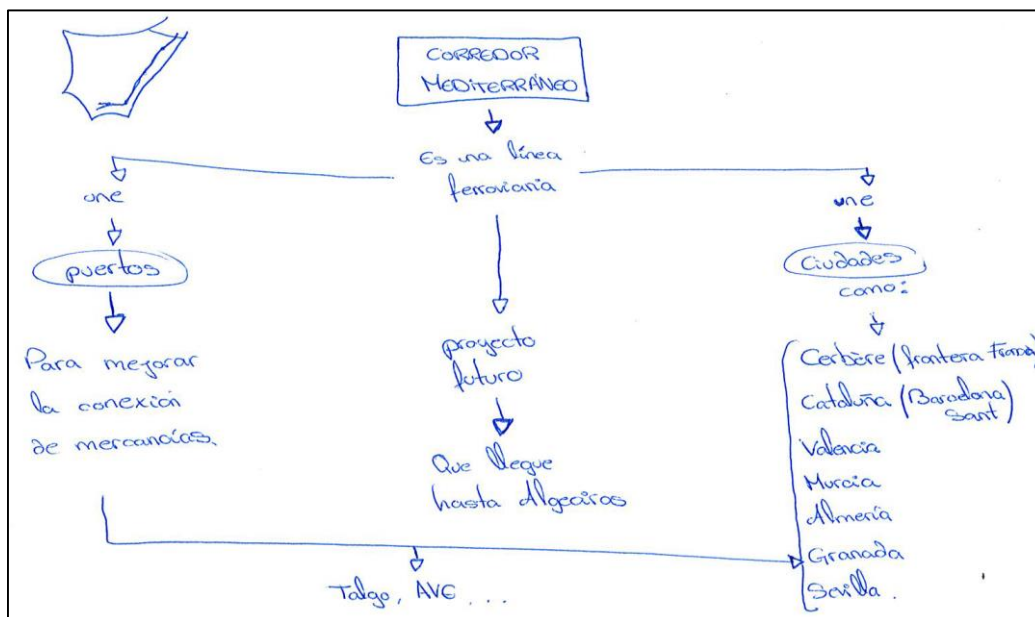 CORREDOR
MEDITERRÁNEO
Es una línea
ferroviaria
une
puertos
Para mejorar
la conexión
de mercancías.
proyecto
futuro
Que llegue
hasta Algeciras
une
Ciudades
como:
Cerbère (frontera Francia)
Cataluña (Barcelona
Sant)
Valencia
Murcia
Almería
Granada
Sevilla.
Talgo, AVE ...